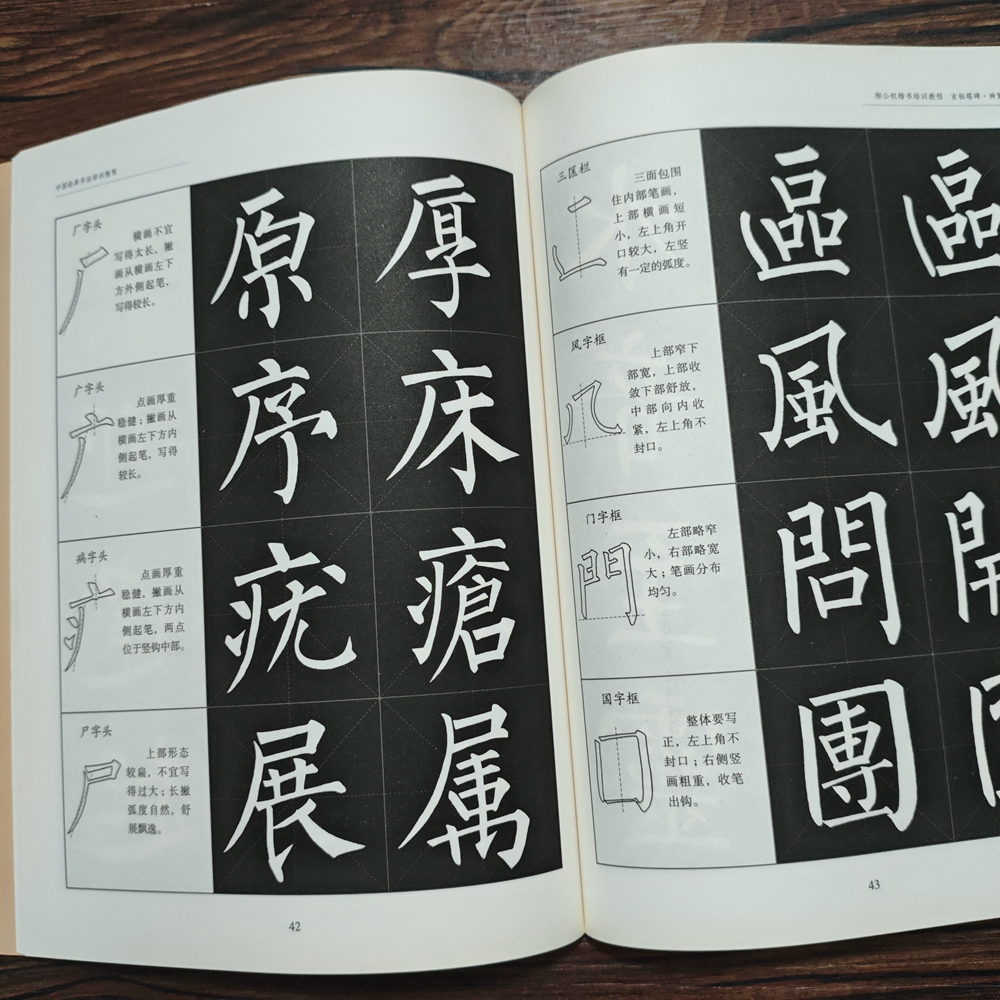 中国经典书法培训教程
厂字头
横画不宜
写得太长，撇
画从横画左下
方外侧起笔，
写得较长。
原 厚
广字头
点画厚重
稳健；撇画从
横画左下方内
侧起笔，写得
较长。
序 床
病字头
点画厚重
稳健，撇画从
横画左下方内
侧起笔，两点
位于竖钩中部。
疣 瘡
尸字头
上部形态
较扁，不宜写
得过大；长撇
弧度自然，舒
展飘逸。
展 属
42
柳公权楷书培训教程 玄秘塔碑·神
三匡栏
三面包围
住内部笔画，
上部横画短
小，左上角开
口较大，左竖
有一定的弧度。
區 區
风字框
上部窄下
部宽，上部收
敛下部舒放，
中部向内收
紧，左上角不
封口。
風 風
门字框
左部略窄
小，右部略宽
大；笔画分布
均匀。
問
国字框
整体要写
正，左上角不
封口；右侧竖
画粗重，收笔
出钩。
團
43